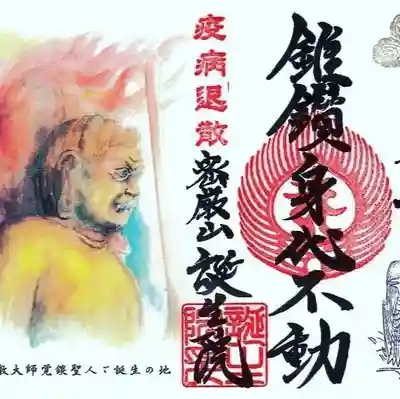 錐鑽身代不動
疫病退散
密厳山 誕生院
教大師覚鑁聖人ご誕生の地